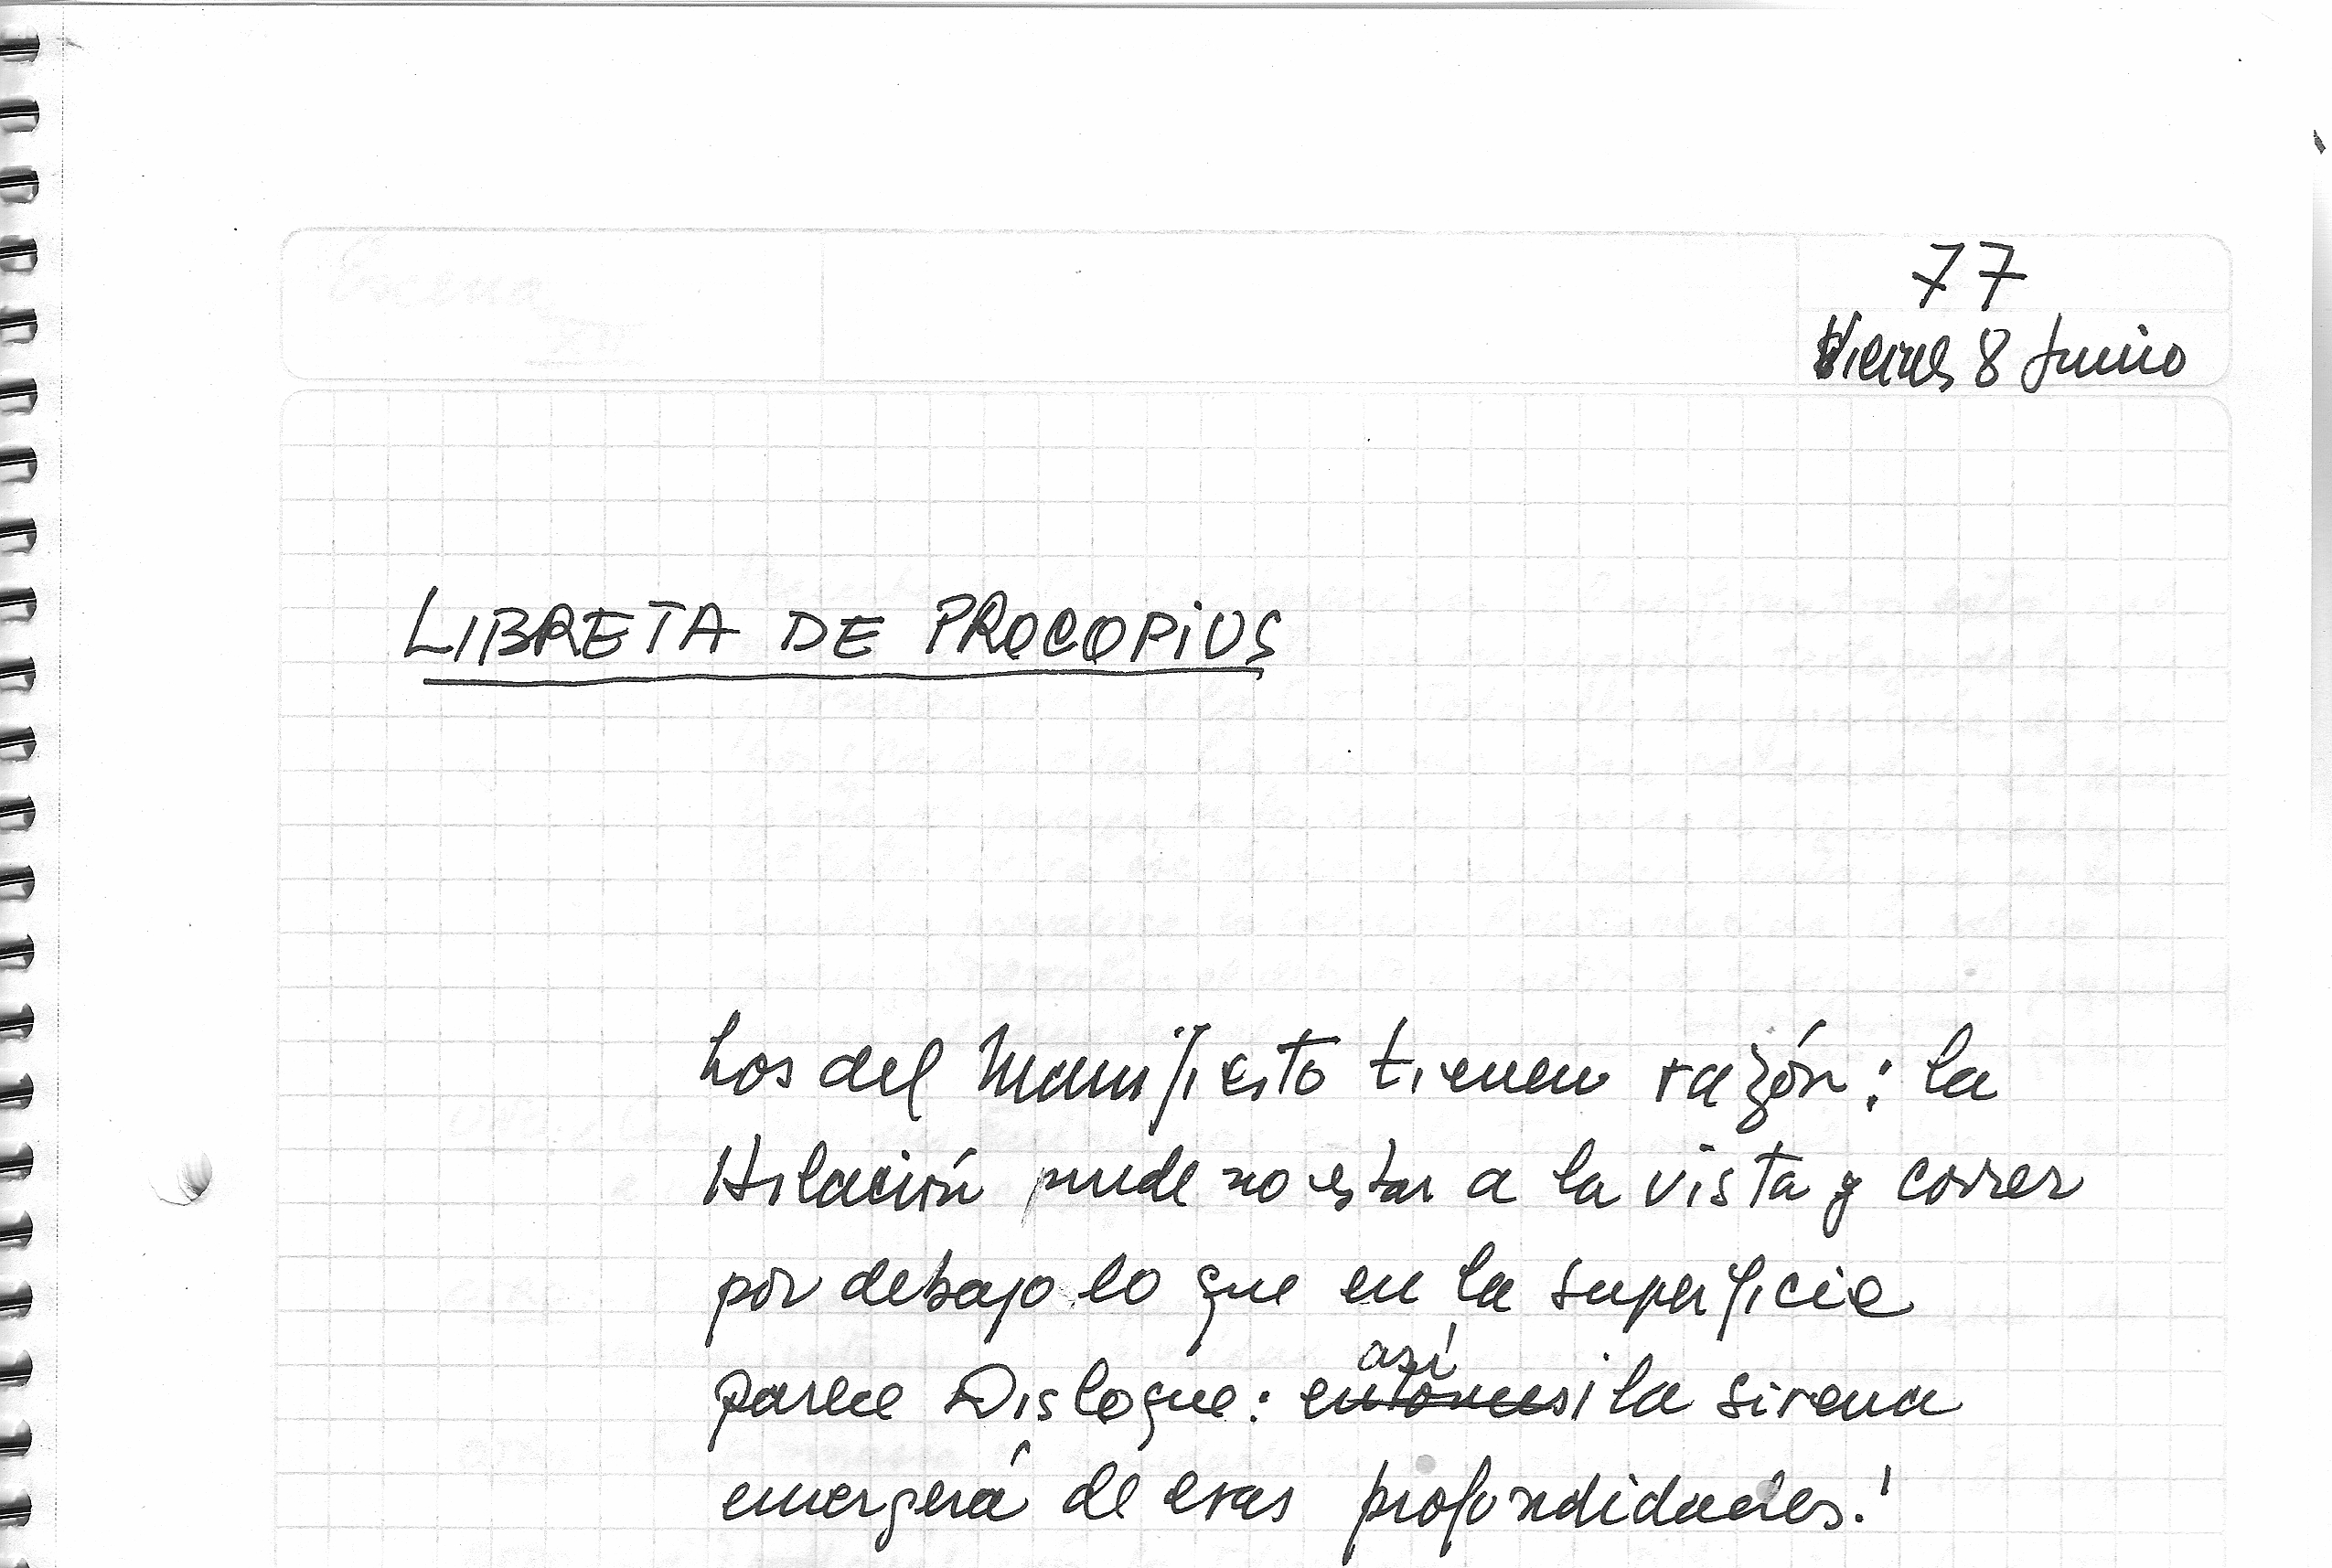 77
Viernes 8 Junio
LIBRETA DE PROCOPIUS
Los del Manifiesto tienen razón: la
Hilación puede no estar a la vista y correr
por debajo lo que en la superficie
parece Disloque: entonces así ¡la sirena
emergerá de esas profundidades!